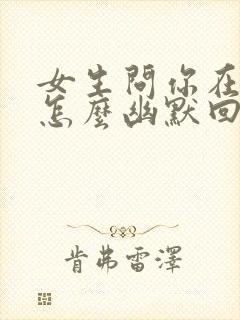 女生問你在
怎麼幽默回
肯弗雷澤